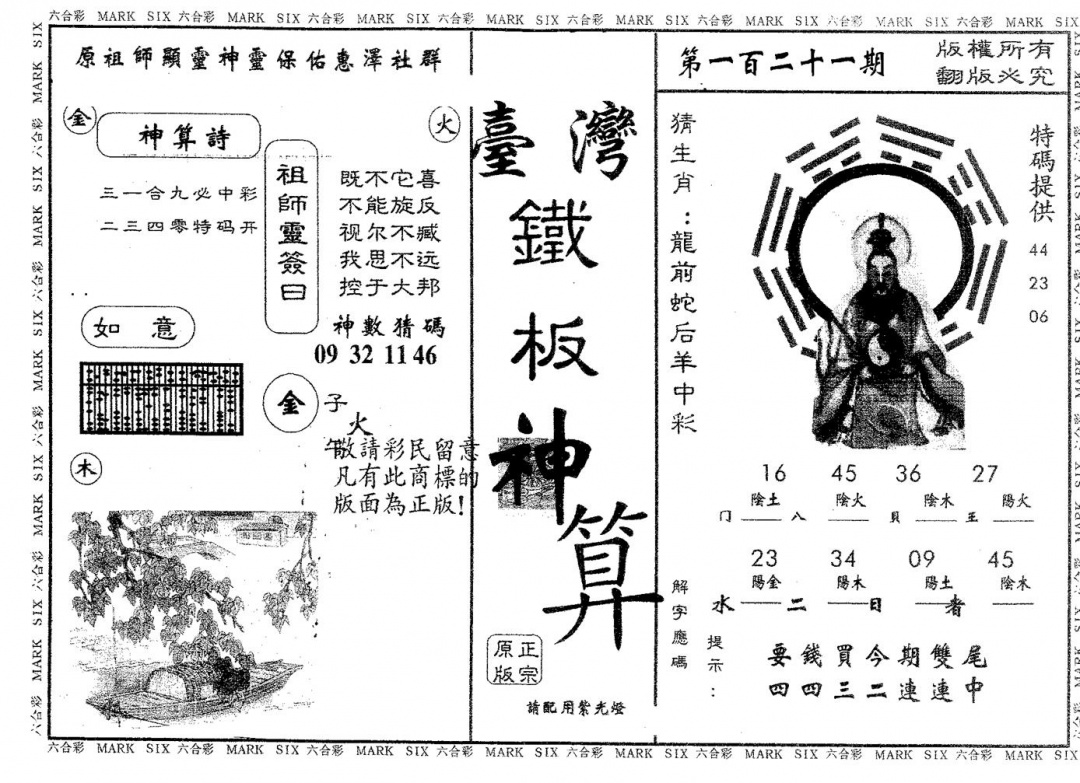 六合彩 MARK SIX 六合彩 MARK SIX 六合彩 MARK SIX 六合彩 MARK SIX 六合彩 MARK SIX 六合彩 MARK SIX 六合彩 MARK SIX 六合彩 MARK SIX
原祖師顯靈神靈保佑惠澤社群
金
神算詩
火
三一合九必中彩
二三四零特码开
祖師靈簽曰
既不它喜
不能旋反
视尔不臧
我思不远
控于大邦
神數猜碼
09 32 11 46
如 意
金
子
火
午
敬請彩民留意
凡有此商標的
版面為正版!
木
臺灣
鐵板神算
正宗
原版
請配用紫光燈
第一百二十一期
版權所有
翻版必究
猜生肖:龍前蛇后羊中彩
特碼提供
44
23
06
16 45 36 27
陰土 陰火 陰木 陽火
门 八 貝 王
23 34 09 45
陽金 陽木 陽土 陰木
水 二 日 者
解字應碼
提示:
要錢買今期雙尾
四四三二連連中
六合彩 MARK SIX 六合彩 MARK SIX 六合彩 MARK SIX 六合彩 MARK SIX 六合彩 MARK SIX 六合彩 MARK SIX 六合彩 MARK SIX 六合彩 MARK SIX